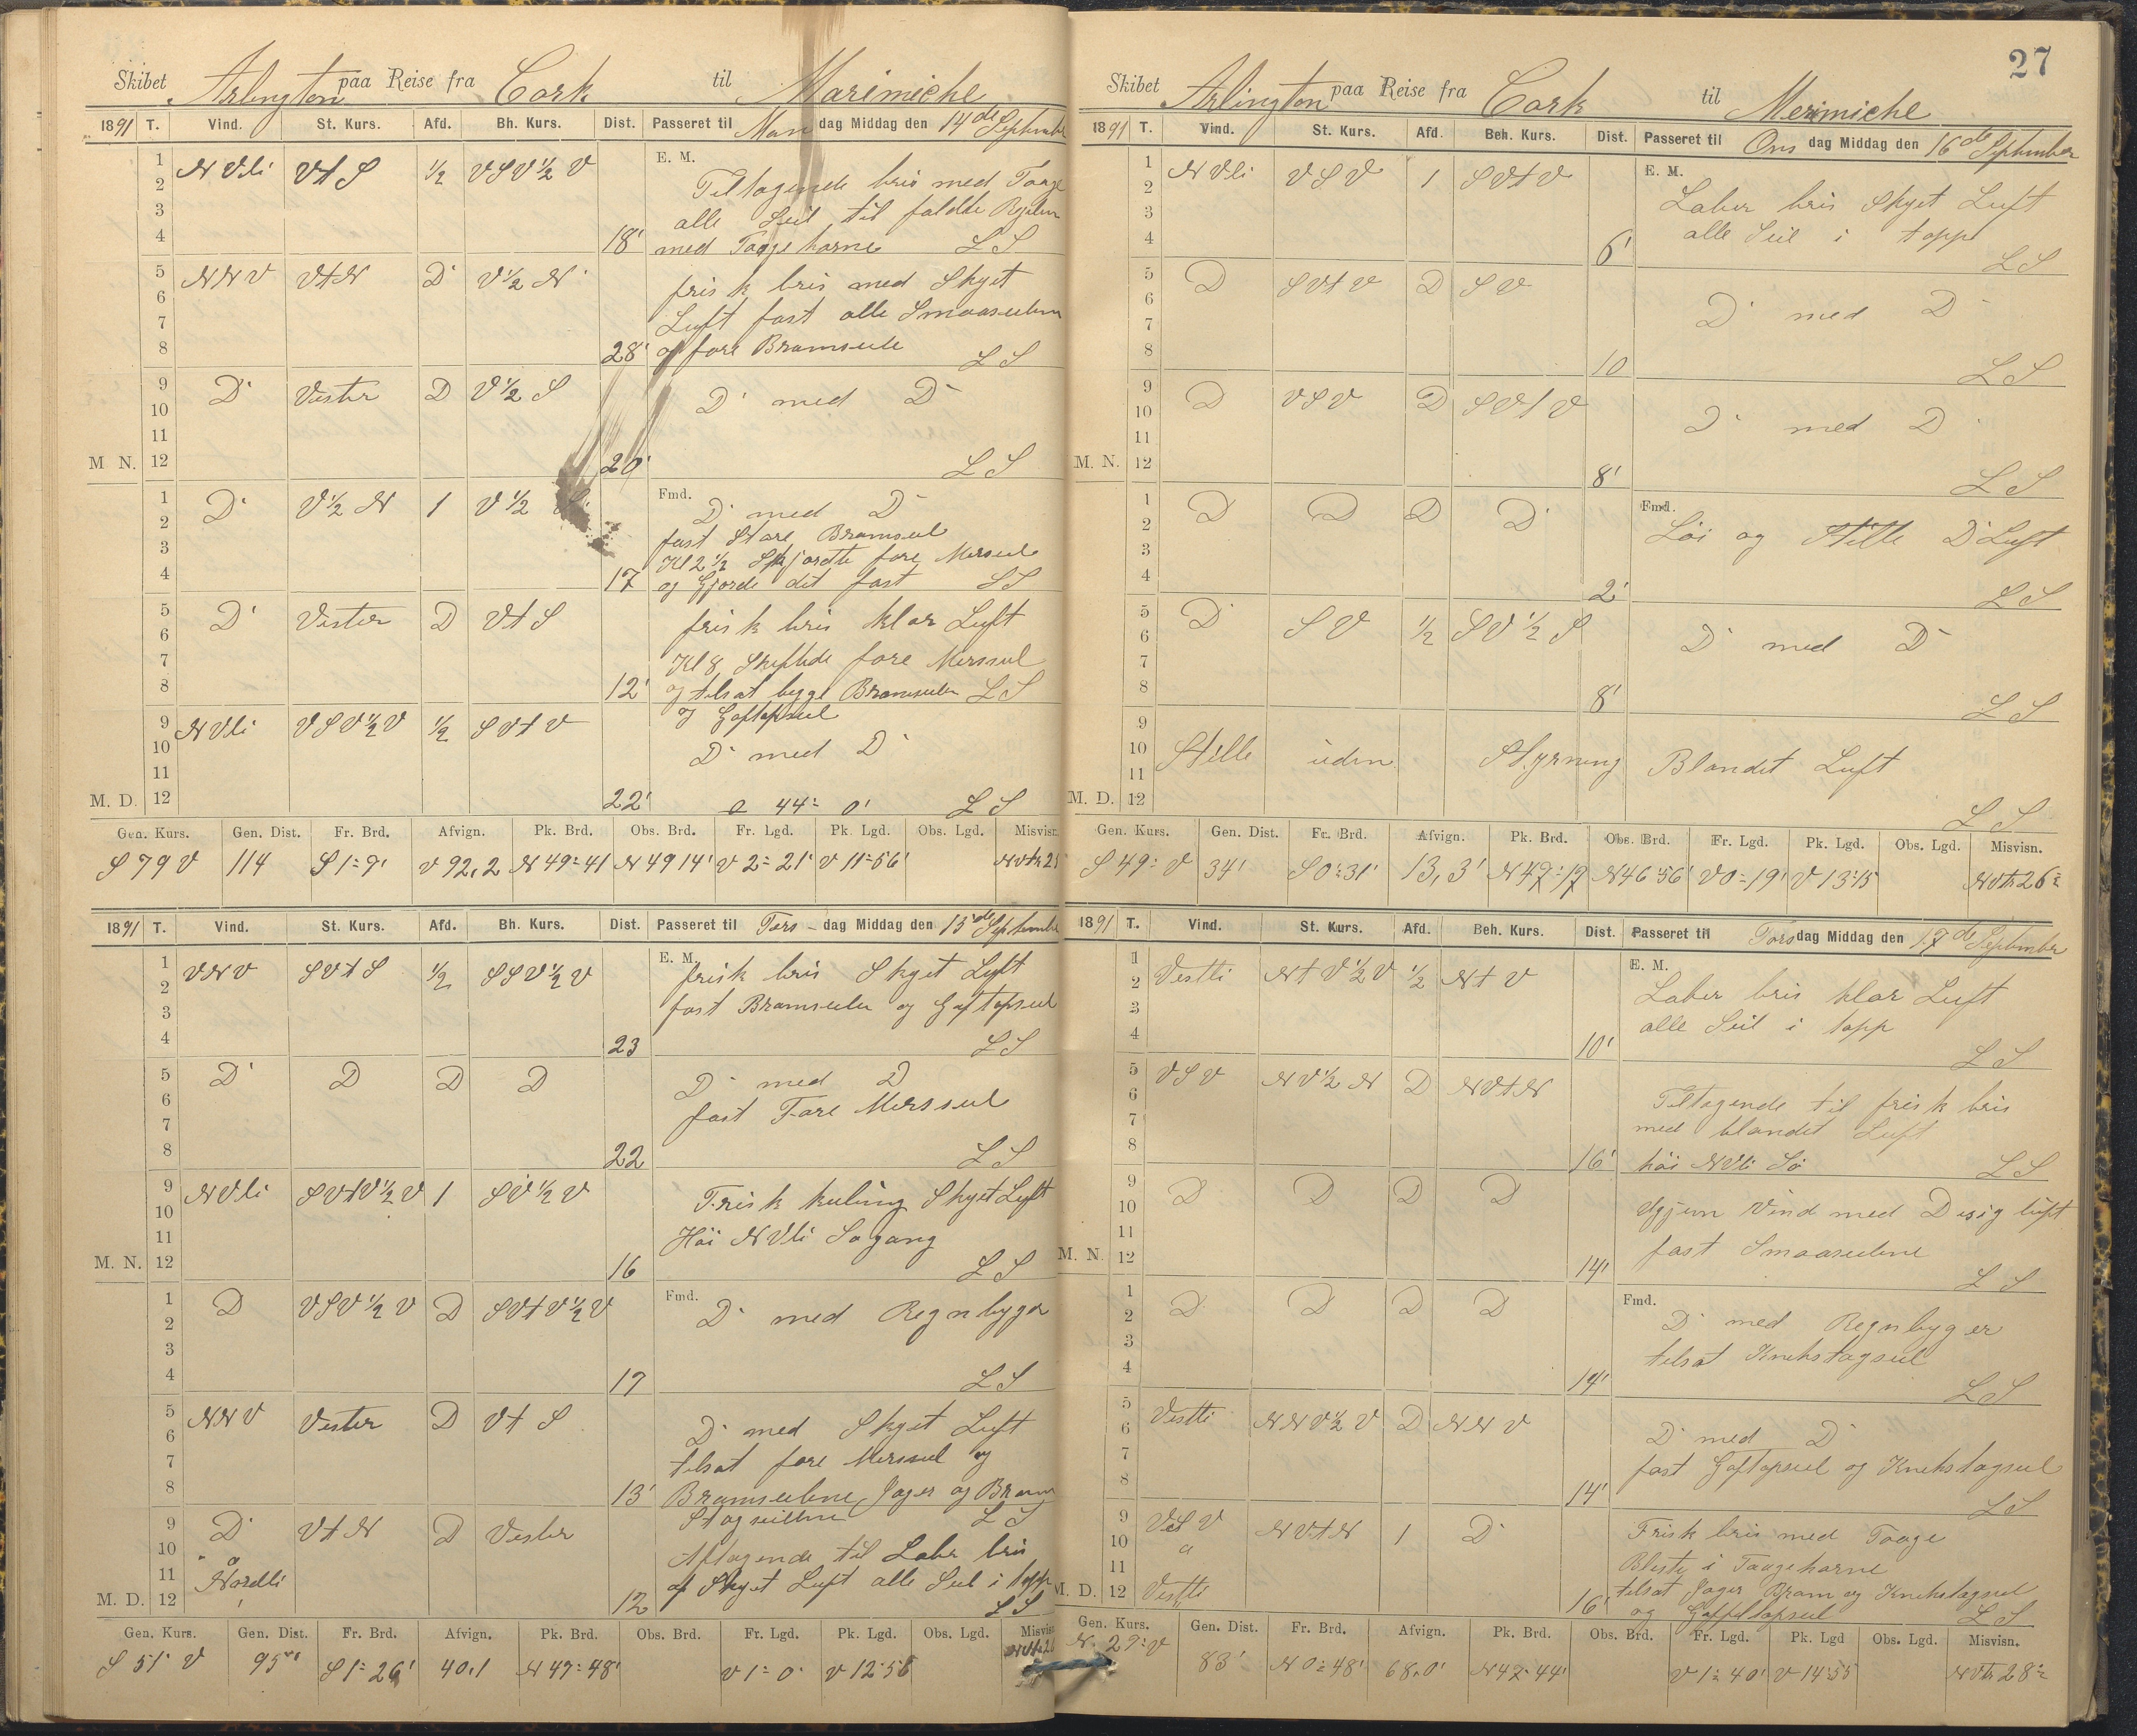 27
Skibet Arlington paa Reise fra Cork til Marimiche
1891 T. Vind. St. Kurs. Afd. Bh. Kurs. Dist. Passeret til Man dag Middag den 14de September
E. M.
1 2 3 4 NVli VtS 1/2 VSV1/2V 18' Tiltagende bris med Taage
alle Seil til faldte
med Taagehorne LS
5 6 7 8 NNV VtN D V1/2N 28' frisk bris med Skyet
Luft fast alle Smaaseilene
og fore Bramseile LS
9 10 11 M N. 12 D Vester D V1/2S 20' D med D
LS
Fmd.
1 2 3 4 D V1/2N 1 V1/2 S 17 D med D
fast Store Bramseil
Kl 2 1/2 fore Merseil
og Gjorde det fast LS
5 6 7 8 D Vester D VtS 12' frisk bris klar Luft
Kl 8 fore Merseil
og tilsat begge Bramseiler LS
og Gaftopseil
9 10 11 M. D. 12 NVli VSV1/2V 1/2 SVtV 22' D med D
44° 0' LS
Gen. Kurs. Gen. Dist. Fr. Brd. Afvign. Pk. Brd. Obs. Brd. Fr. Lgd. Pk. Lgd. Obs. Lgd. Misvisn.
S 79 V 114 S 1° 9' V 92,2 N 49° 41 N 49 14' V 2° 21' V 11° 56'
1891 T. Vind. St. Kurs. Afd. Bh. Kurs. Dist. Passeret til Tors dag Middag den 15de September
E. M.
1 2 3 4 VNV SVtS 1/2 SSV1/2V 23 frisk bris Skyet Luft
fast Bramseiler og Gaftopseil
LS
5 6 7 8 D D D D 22 D med D
fast Fore Mersseil
LS
9 10 11 M. N. 12 NVli SVtV1/2V 1 SV1/2V 16 Frisk kuling Skyet Luft
Höi NVli Søgang
LS
Fmd.
1 2 3 4 D VSV1/2V D SVtV1/2V 17 D med Regnbyger
LS
5 6 7 8 NNV Vester D VtS 13' D med Skyet Luft
tilsat fore Merseil og
Bramseilene Jager og Bram
Stagseilene LS
9 10 11 M. D. 12 D Nordli VtN D Vester 12 Aftagende til Laber bris
af Skyet Luft alle Seil i topp
LS
Gen. Kurs. Gen. Dist. Fr. Brd. Afvign. Pk. Brd. Obs. Brd. Fr. Lgd. Pk. Lgd. Obs. Lgd. Misvisn.
S 51° V 95 S 1° 26' 40,1 N 47° 48' V 1° 0' V 12° 56
Skibet Arlington paa Reise fra Cork til Merimiche
1891 T. Vind. St. Kurs. Afd. Beh. Kurs. Dist. Passeret til Ons dag Middag den 16de September
E. M.
1 2 3 4 NVli VSV 1 SVtV 6' Laber bris Skyet Luft
alle Seil i topp
LS
5 6 7 8 D SVtV D SV 10 D med D
LS
9 10 11 M. N. 12 D VSV D SVtV 8' D med D
LS
Fmd.
1 2 3 4 D D D D 2' Löi og Stille D Luft
LS
5 6 7 8 D SV 1/2 SV1/2S 8' D med D
LS
9 10 11 M. D. 12 Stille uden Styrning Blandet Luft
LS
Gen. Kurs. Gen. Dist. Fr. Brd. Afvign. Pk. Brd. Obs. Brd. Fr. Lgd. Pk. Lgd. Obs. Lgd. Misvisn.
S 49° V 34' S 0° 31' 13,3' N 47° 17 N 46 56' V 0° 19' V 13° 15 NVtn 26°
1891 T. Vind. St. Kurs. Afd. Beh. Kurs. Dist. Passeret til Tors dag Middag den 17de September
E. M.
1 2 3 4 Vestli NtV1/2V 1/2 NtV 10' Laber bris klar Luft
alle Seil i topp
LS
5 6 7 8 VSV NV1/2N D NVtN 16' Tiltagende til frisk bris
med blandet Luft
höi NVli Sö LS
9 10 11 M. N. 12 D D D D 14' Igjen Vind med Disig luft
fast Smaaseilene
LS
Fmd.
1 2 3 4 D D D D 14' D med Regnbyger
tilsat Knekstagseil
LS
5 6 7 8 Vestli NNV1/2V D NNV 14' D med D
fast Gaftopseil og Knekstagseil
LS
9 10 11 M. D. 12 VSV Vestli NVtN 1 D 16' Frisk bris med Taage
Blæste i Taagehorne
tilsat Jager Bram og Knekstagseil
og Gaffeltopseil LS
Gen. Kurs. Gen. Dist. Fr. Brd. Afvign. Pk. Brd. Obs. Brd. Fr. Lgd. Pk. Lgd Obs. Lgd. Misvisn.
N. 29° V 83' N 0° 48' 68,0' N 47° 44' V 1° 40' V 14° 55 NVtn 28°